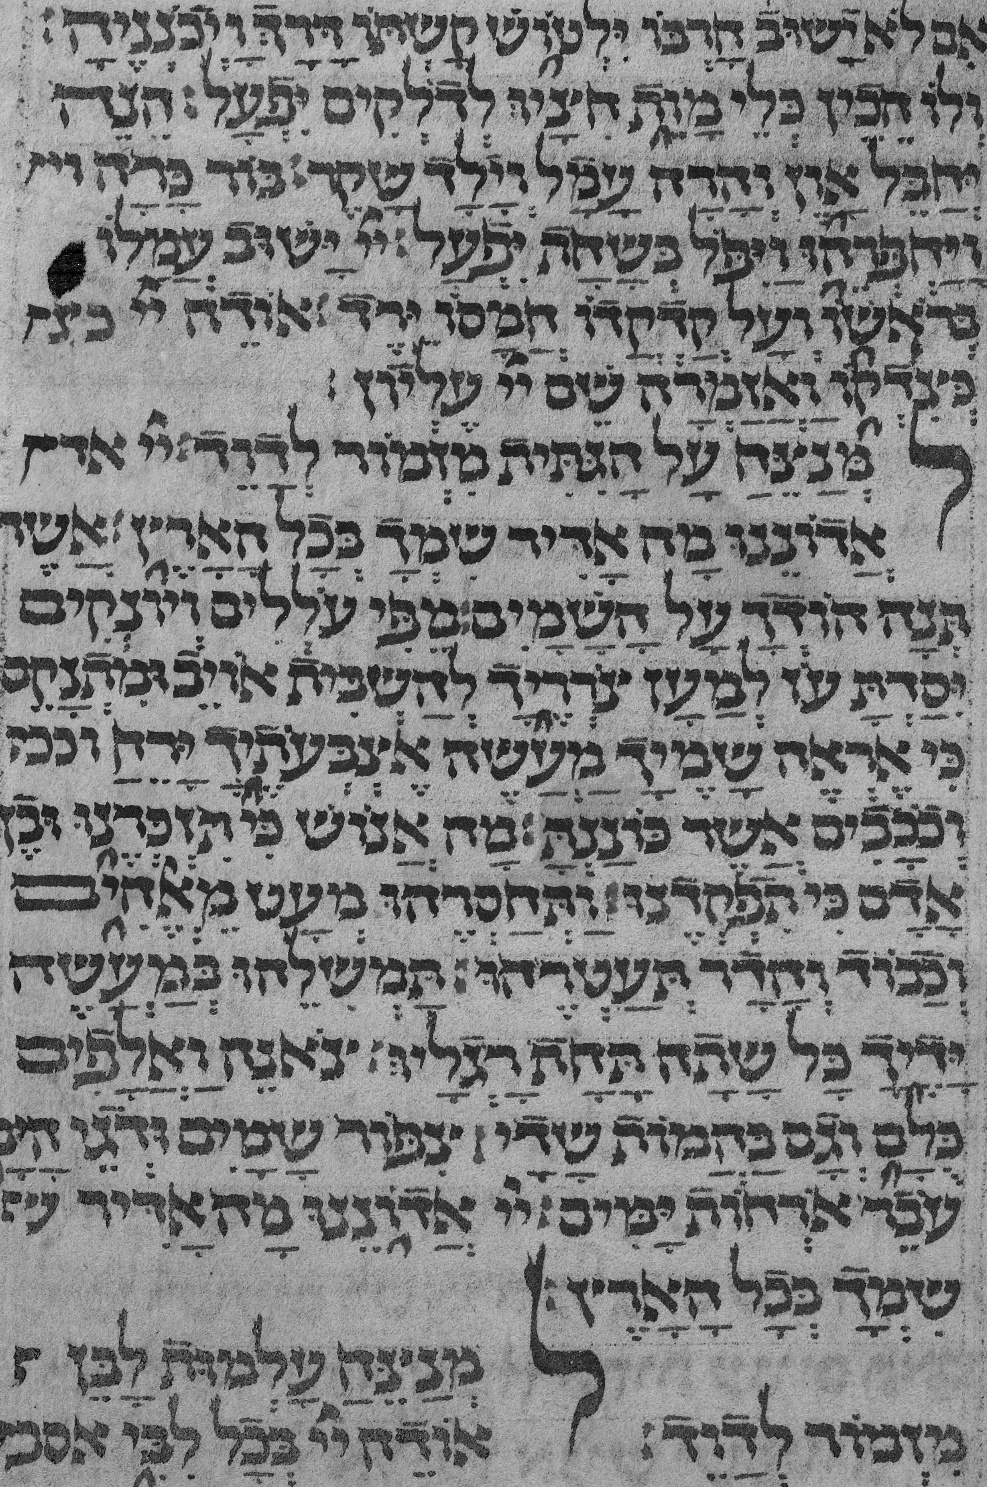 אִם לֹא יָשׁוּב חַרְבּוֹ יִלְטוֹשׁ קַשְׁתּוֹ דָרַךְ וַיְכֹנְנֶיהָ׃
וְלוֹ הֵכִין כְּלֵי מָוֶת חִצָּיו לְדֹלְקִים יִפְעָל׃ הִנֵּה
יְחַבֶּל אָוֶן וְהָרָה עָמָל וְיָלַד שָׁקֶר׃ בּוֹר כָּרָה
וַיַּחְפְּרֵהוּ וַיִּפֹּל בְּשַׁחַת יִפְעָל׃ יָשׁוּב עֲמָלוֹ
בְרֹאשׁוֹ וְעַל קָדְקֳדוֹ חֲמָסוֹ יֵרֵד׃ אוֹדֶה יי
כְּצִדְקוֹ וַאֲזַמְּרָה שֵׁם יי עֶלְיוֹן׃
לַמְנַצֵּחַ עַל הַגִּתִּית מִזְמוֹר לְדָוִד׃ יי
אֲדוֹנֵנוּ מָה אַדִּיר שִׁמְךָ בְּכָל הָאָרֶץ אֲשֶׁר
תְּנָה הוֹדְךָ עַל הַשָּׁמָיִם׃ מִפִּי עֹלְלִים וְיוֹנְקִים
יִסַּדְתָּ עֹז לְמַעַן צֹרְרֶיךָ לְהַשְׁבִּית אוֹיֵב וּמִתְנַקֵּם
כִּי אֶרְאֶה שָׁמֶיךָ מַעֲשֵׂה אֶצְבְּעֹתֶיךָ יָרֵחַ
וְכֹכָבִים אֲשֶׁר כּוֹנָנְתָּ׃ מָה אֱנוֹשׁ כִּי תִזְכְּרֶנּוּ
אָדָם כִּי תִפְקְדֶנּוּ׃ וַתְּחַסְּרֵהוּ מְעַט מֵאֱלֹהִים
וְכָבוֹד וְהָדָר תְּעַטְּרֵהוּ׃ תַּמְשִׁילֵהוּ בְּמַעֲשֵׂה
יָדֶיךָ כֹּל שַׁתָּה תַחַת רַגְלָיו׃ צֹנֶה וַאֲלָפִים
כֻּלָּם וְגַם בַּהֲמוֹת שָׂדָי׃ צִפּוֹר שָׁמַיִם וּדְגֵי
עֹבֵר אָרְחוֹת יַמִּים׃ יי אֲדוֹנֵנוּ מָה אַדִּיר
שִׁמְךָ בְּכָל הָאָרֶץ׃
לַמְנַצֵּחַ עַלְמוּת לַבֵּן
מִזְמוֹר לְדָוִד׃ אוֹדֶה יי בְּכָל לִבִּי